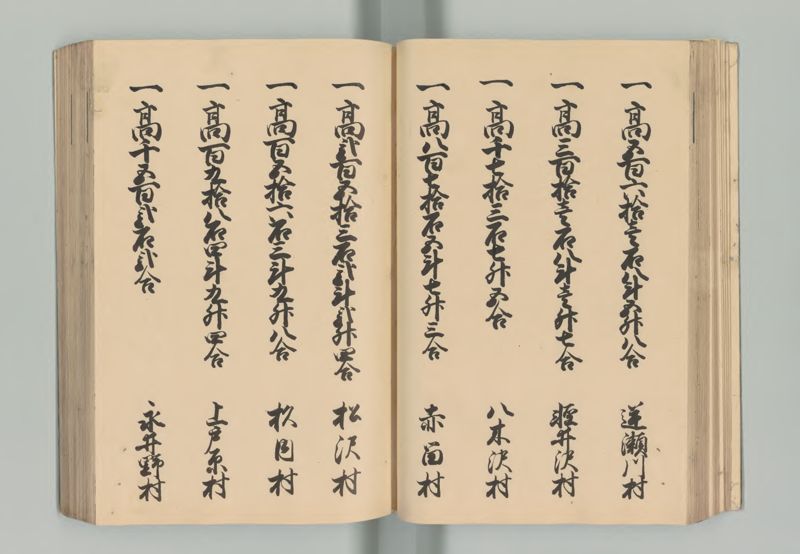 一高五百六拾壱石八斗五升八合 逆瀬川村
一高三百拾壱石八斗壱升七合 軽井沢村
一高千七拾三石七升五合 八木沢村
一高八百七拾石五斗七升三合 赤留村
一高弐百五拾三石弐斗弐升四合 松沢村
一高百五拾六石三斗九升八合 杦月村
一高百九拾八石四斗九升四合 上戸原村
一高千五百弐石弐合 永井野村